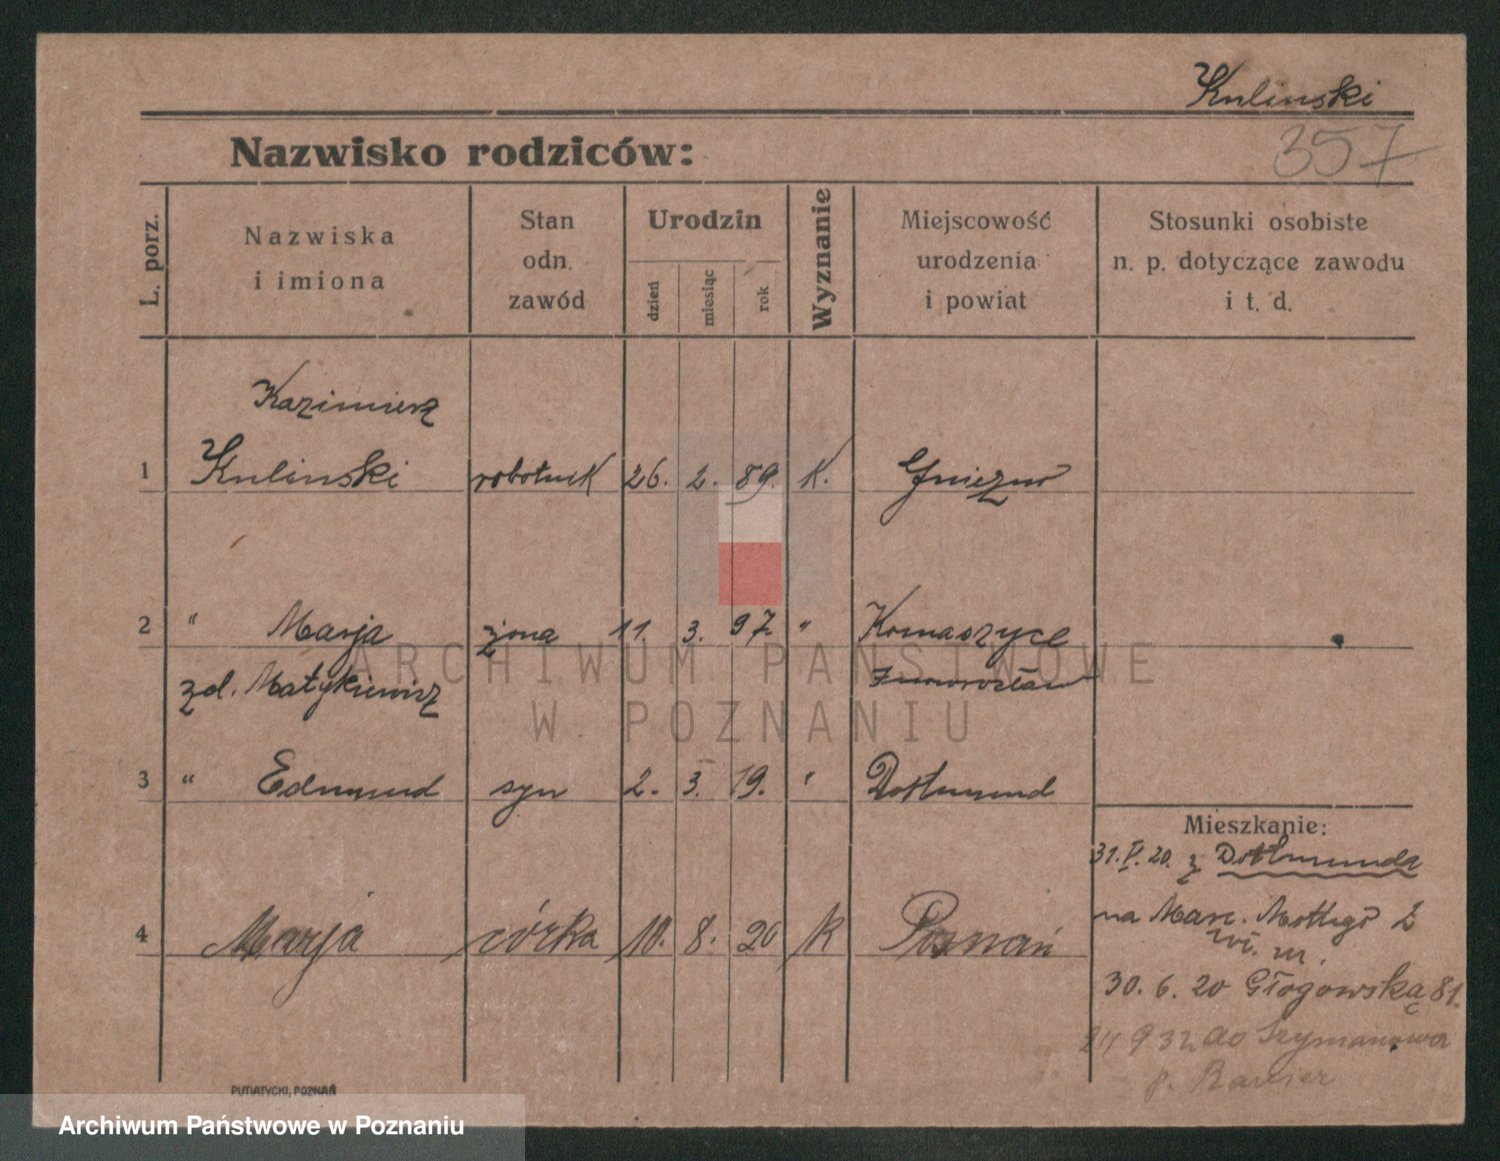 Kulinski
357
Nazwisko rodziców:
L. porz.
Nazwiska
i imiona
Stan
odn.
zawód
Urodzin
dzień
miesiąc
rok
Wyznanie
Miejscowość
urodzenia
i powiat
Stosunki osobiste
n. p. dotyczące zawodu
i t. d.
Kazimierz
1 Kulinski robotnik 26. 2. 89. K. Gniezno
2 " Marja żona 11. 3. 97. " Komaszyce
zd. Matykiewicz
3 " Edmund syn 2. 3. 19. " Dortmund
Mieszkanie:
31. V. 20. z Dortmunda
4 Marja córka 10. 8. 20 K Poznań
na Marc. Mottego 2
30. 6. 20 Głogowska 81.
24 9 32 do Szymanowa
p.
PUTIATYCKI, POZNAŃ
ARCHIWUM PAŃSTWOWE
W POZNANIU
Archiwum Państwowe w Poznaniu